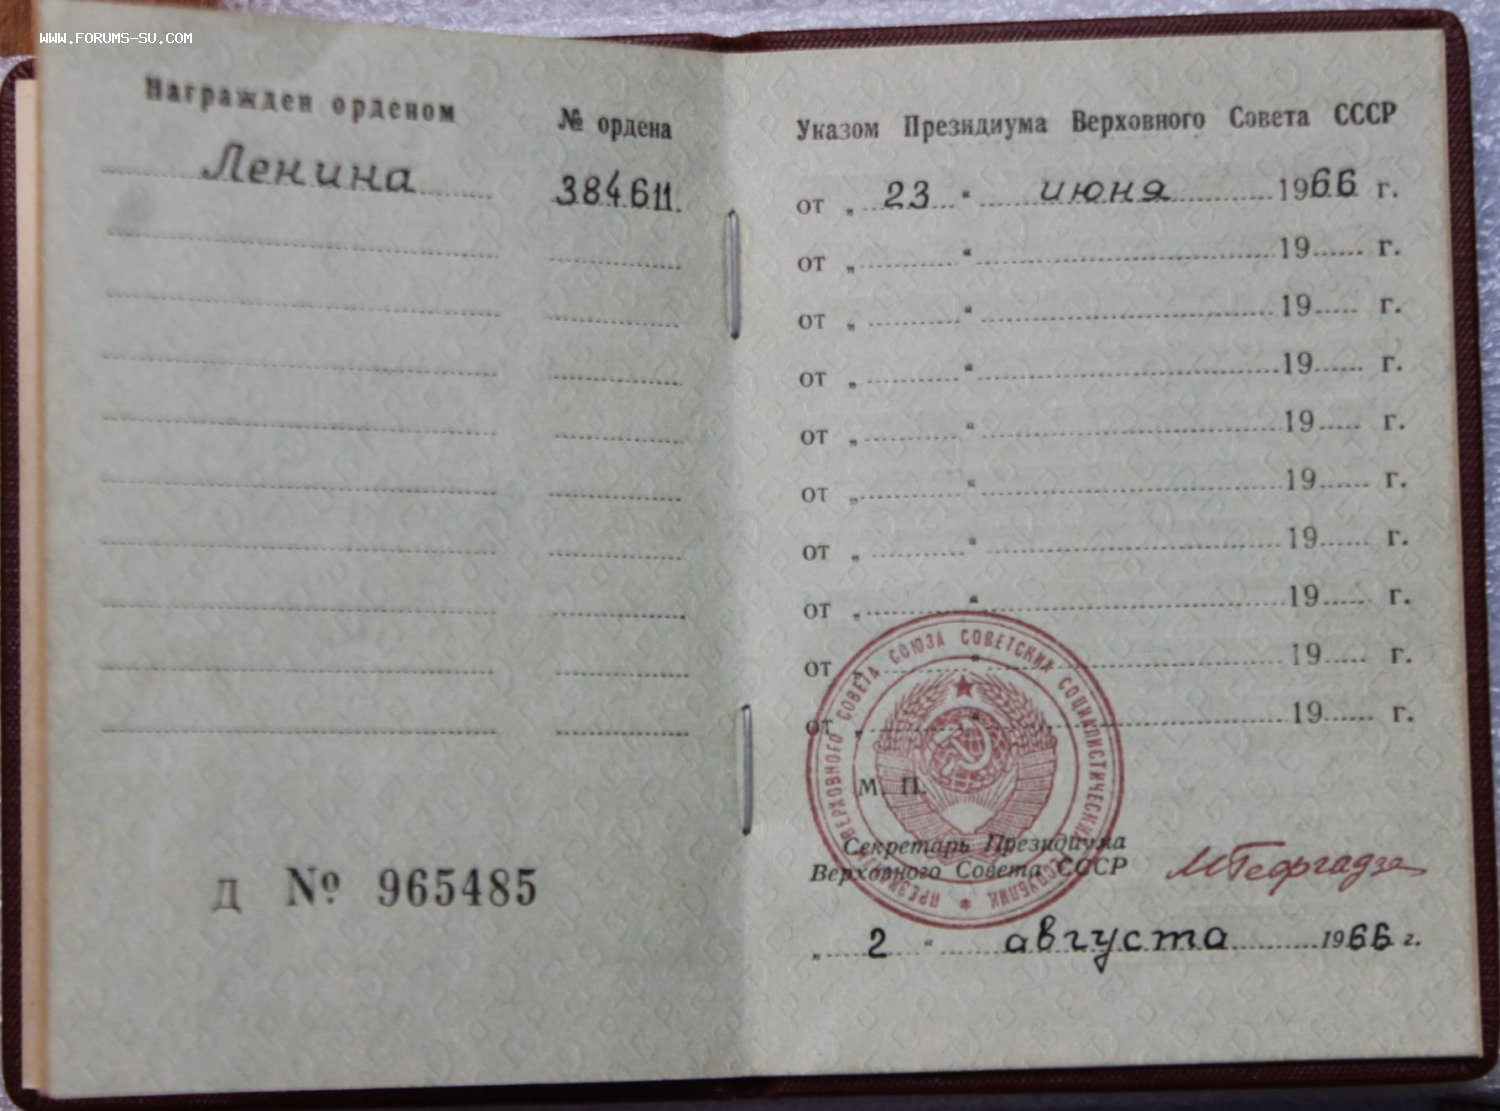 WWW.FORUMS-SU.COM
Награжден орденом
№ ордена
Ленина
384611.
Д № 965485
Указом Президиума Верховного Совета СССР
от „ 23 “ июня 1966 г.
от „ “ 19 г.
от „ “ 19 г.
от „ “ 19 г.
от „ “ 19 г.
от „ “ 19 г.
от „ “ 19 г.
от „ “ 19 г.
от „ “ 19 г.
от „ “ 19 г.
ПРЕЗИДИУМ ВЕРХОВНОГО СОВЕТА СОЮЗА СОВЕТСКИХ СОЦИАЛИСТИЧЕСКИХ РЕСПУБЛИК *
М. П.
Секретарь Президиума
Верховного Совета СССР
МГеоргадзе
„ 2 “ августа 1966 г.